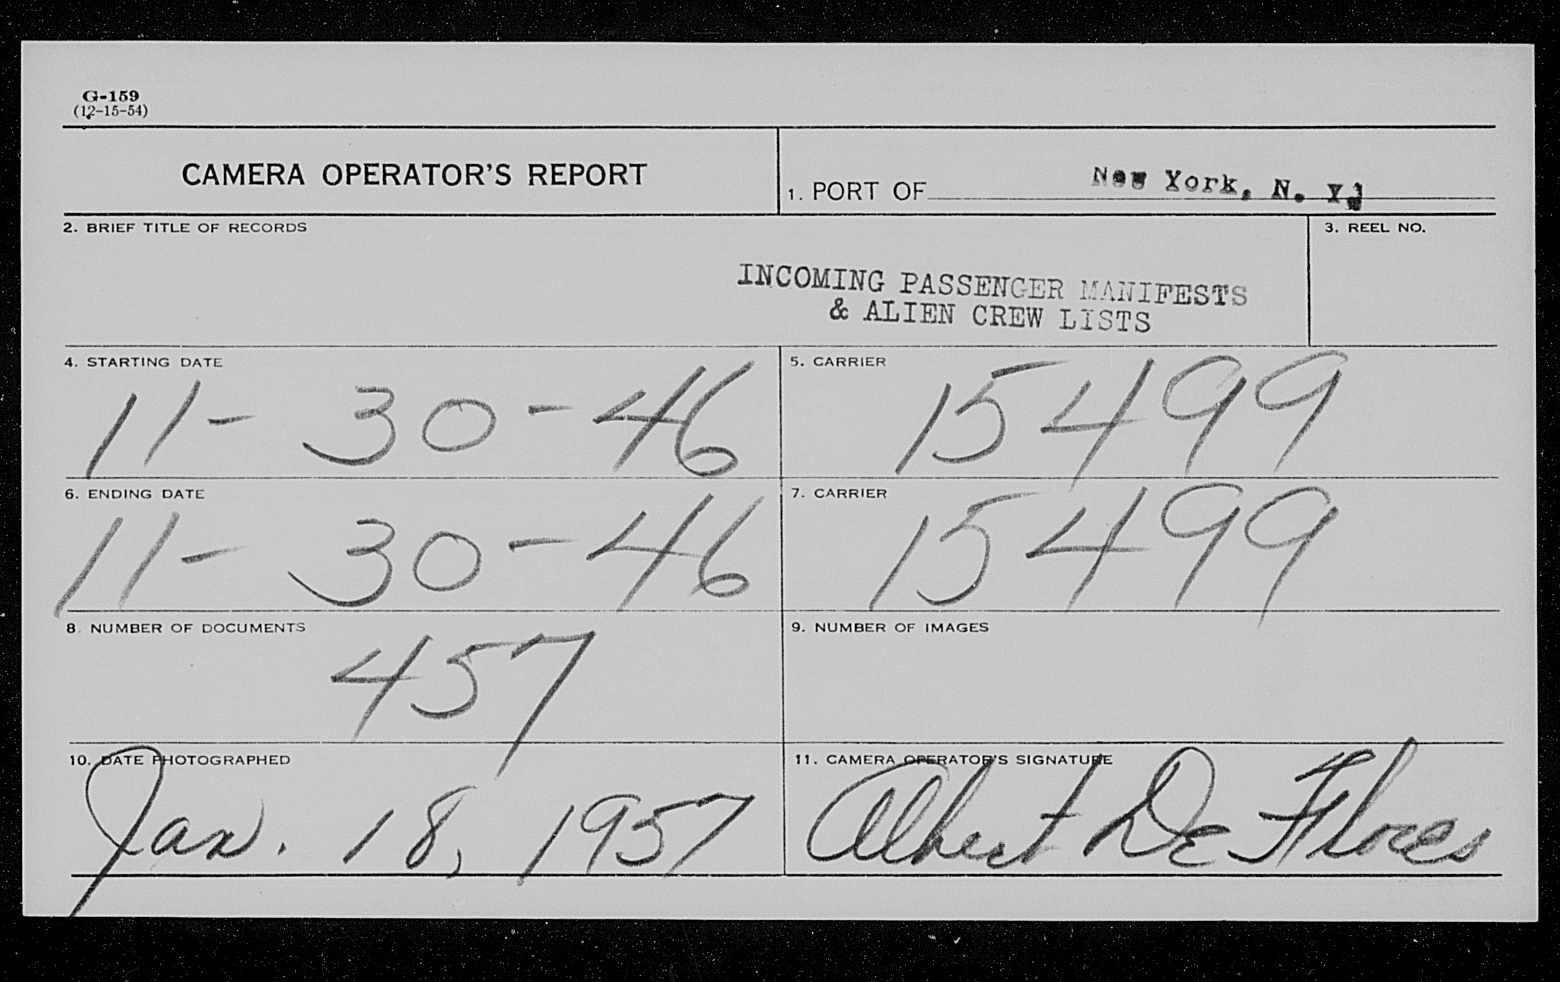 G-159
(12-15-54)
CAMERA OPERATOR'S REPORT
1. PORT OF New York, N. Y.
2. BRIEF TITLE OF RECORDS
3. REEL NO.
INCOMING PASSENGER MANIFESTS
& ALIEN CREW LISTS
4. STARTING DATE
11-30-46
5. CARRIER
15499
6. ENDING DATE
11-30-46
7. CARRIER
15499
8. NUMBER OF DOCUMENTS
457
9. NUMBER OF IMAGES
10. DATE PHOTOGRAPHED
Jan. 18, 1957
11. CAMERA OPERATOR'S SIGNATURE
Albert De Flores